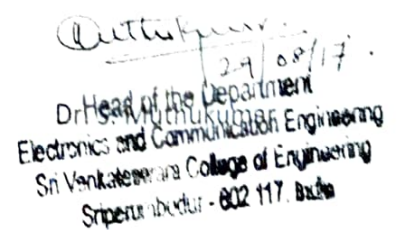 Muthukumar.
29/08/17.
Head of the Department
Dr. S. Muthukumar
Electronics and Communication Engineering
Sri Venkateswara College of Engineering
Sriperumbudur - 602 117. India